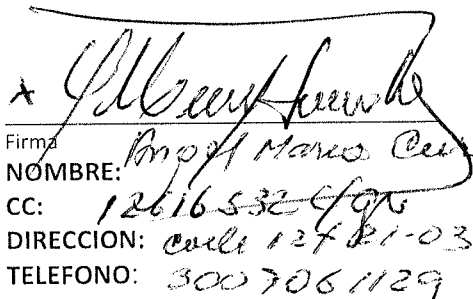 Firma
NOMBRE: Angel Maria
CC: 12616532
DIRECCION: calle 12 # 21-03
TELEFONO: 3007061129